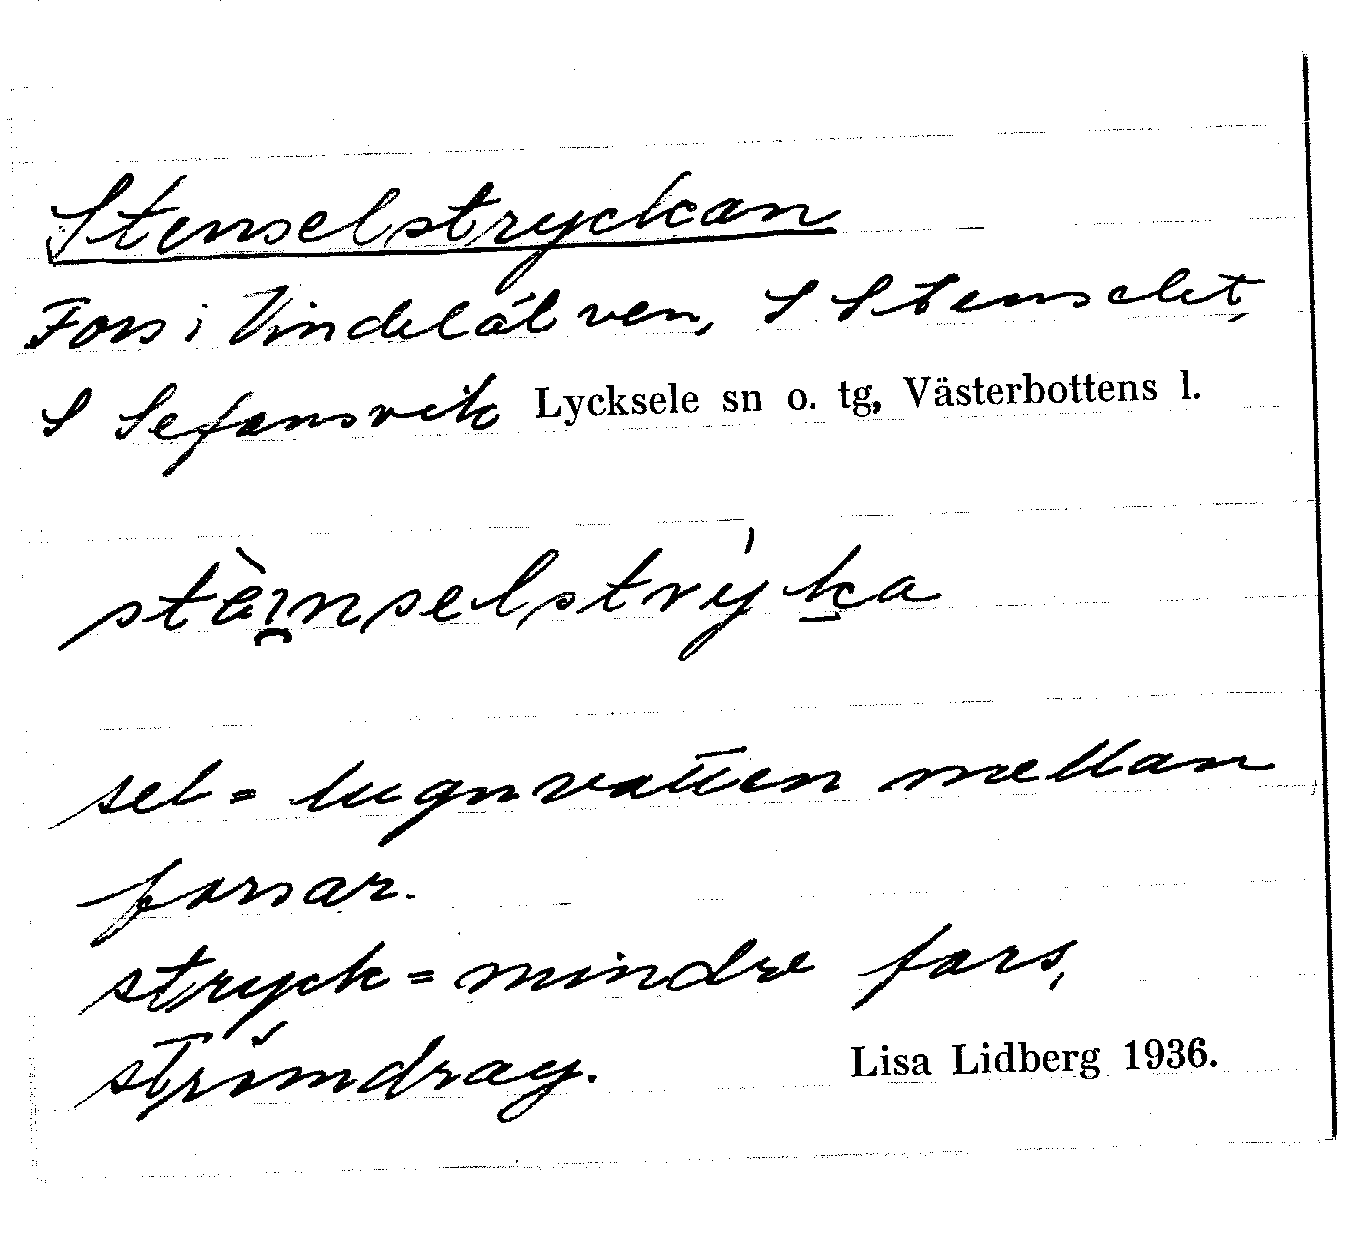 Stenselstryckan
Fors i Vindelälven, S Stenselet,
S Sefansvik Lycksele sn o. tg, Västerbottens l.
stèi̯nselstrýka
sel = lugnvatten mellan
forsar.
stryck = mindre fors,
strömdrag.
Lisa Lidberg 1936.